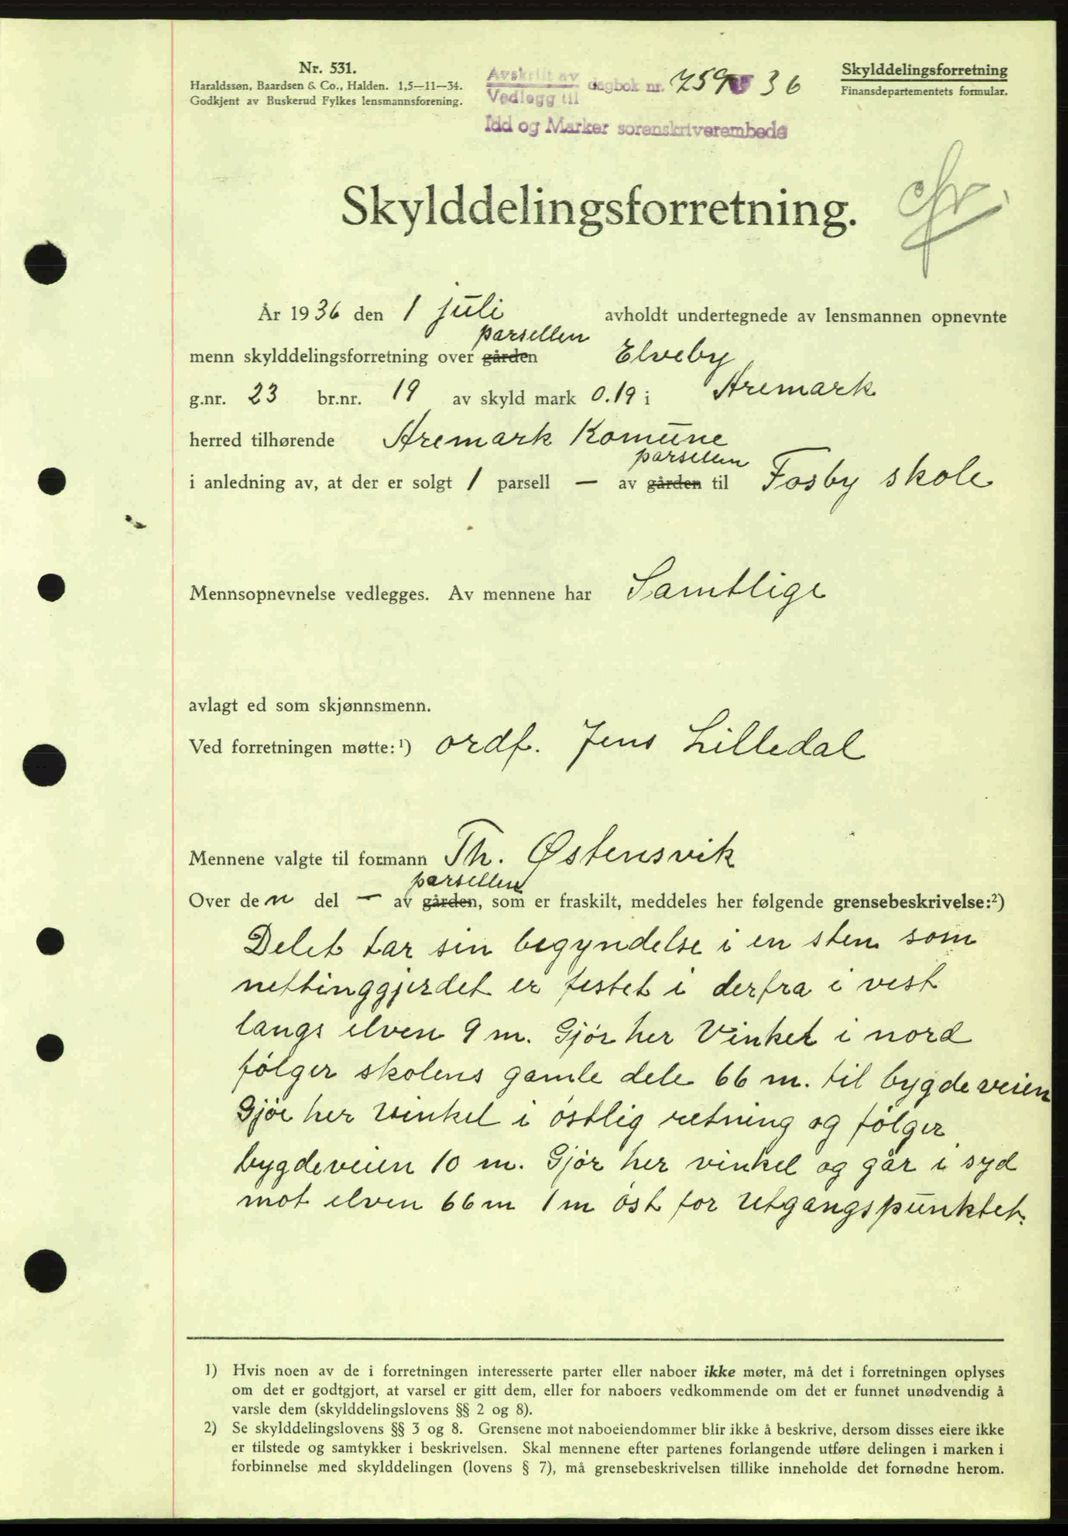 Nr. 531.
Haraldssøn, Baardsen & Co., Halden. 1,5—11—34.
Godkjent av Buskerud Fylkes lensmannsforening.
Avskrift av
Vedlegg til dagbok nr. 759 36
Idd og Marker sorenskriverembede
Skylddelingsforretning
Finansdepartementets formular.
Skylddelingsforretning.
År 1936 den 1 juli avholdt undertegnede av lensmannen opnevnte
parsellen
menn skylddelingsforretning over gården Elveby
g.nr. 23 br.nr. 19 av skyld mark 0.19 i Aremark
herred tilhørende Aremark Komune
parsellen
i anledning av, at der er solgt 1 parsell — av gården til Fosby skole
Mennsopnevnelse vedlegges. Av mennene har Samtlige
avlagt ed som skjønnsmenn.
Ved forretningen møtte:¹) ordf. Jens Lilledal
Mennene valgte til formann Th. Østensvik
parsellen
Over den del — av gården, som er fraskilt, meddeles her følgende grensebeskrivelse:²)
Delet tar sin begyndelse i en sten som
nettinggjerdet er festet i derfra i vest
langs elven 9 m. Gjör her Vinkel i nord
følger skolens gamle dele 66 m. til bygdeveien
Gjör her vinkel i östlig retning og følger
bygdeveien 10 m. Gjör her vinkel og går i syd
mot elven 66 m 1 m öst for utgangspunktet.
1) Hvis noen av de i forretningen interesserte parter eller naboer ikke møter, må det i forretningen oplyses
om det er godtgjort, at varsel er gitt dem, eller for naboers vedkommende om det er funnet unødvendig å
varsle dem (skylddelingslovens §§ 2 og 8).
2) Se skylddelingslovens §§ 3 og 8. Grensene mot naboeiendommer blir ikke å beskrive, dersom disses eiere ikke
er tilstede og samtykker i beskrivelsen. Skal mennene efter partenes forlangende utføre delingen i marken i
forbinnelse med skylddelingen (lovens § 7), må grensebeskrivelsen tillike inneholde det fornødne herom.